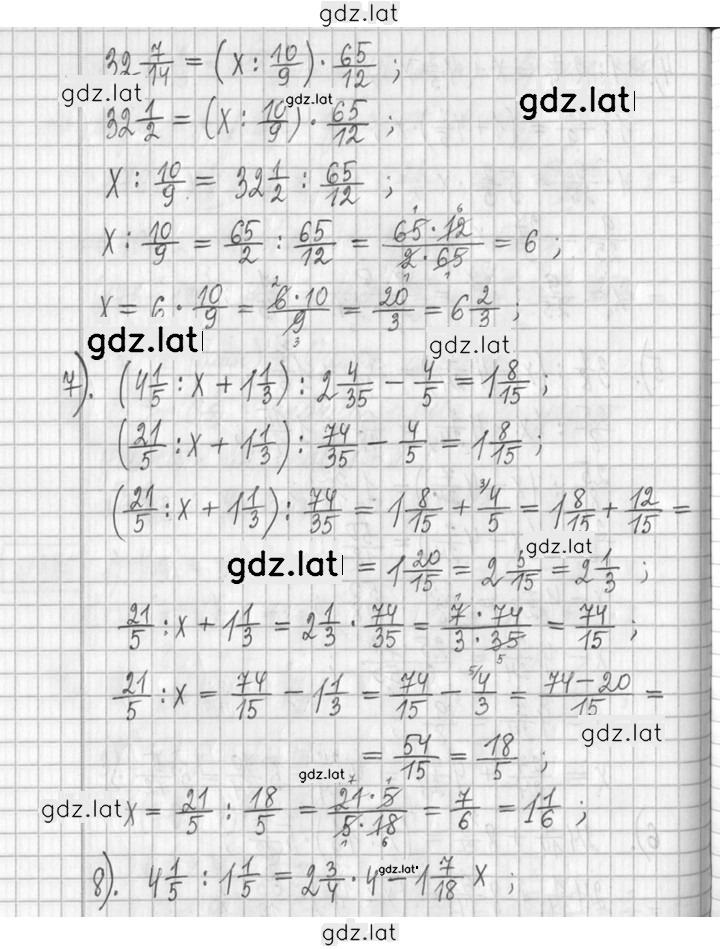 gdz.lat
32 7/14 = (x : 10/9) · 65/12 ;
gdz.lat gdz.lat gdz.lat
32 1/2 = (x : 10/9) · 65/12 ;
x : 10/9 = 32 1/2 : 65/12 ;
x : 10/9 = 65/2 : 65/12 = 65 · 12 / 2 · 65 = 6 ;
x = 6 · 10/9 = 6 · 10 / 9 = 20/3 = 6 2/3 ;
gdz.lat gdz.lat
7). (4 1/5 : x + 1 1/3) : 2 4/35 − 4/5 = 1 8/15 ;
(21/5 : x + 1 1/3) : 74/35 − 4/5 = 1 8/15 ;
(21/5 : x + 1 1/3) : 74/35 = 1 8/15 + 4/5 = 1 8/15 + 12/15 =
gdz.lat gdz.lat
= 1 20/15 = 2 5/15 = 2 1/3 ;
21/5 : x + 1 1/3 = 2 1/3 · 74/35 = 7 · 74 / 3 · 35 = 74/15 ;
21/5 : x = 74/15 − 1 1/3 = 74/15 − 4/3 = 74 − 20 / 15 =
gdz.lat
= 54/15 = 18/5 ;
gdz.lat
gdz.lat x = 21/5 : 18/5 = 21 · 5 / 5 · 18 = 7/6 = 1 1/6 ;
8). 4 1/5 : 1 1/5 = 2 3/4 · 4 − 1 7/18 x ;
gdz.lat
gdz.lat